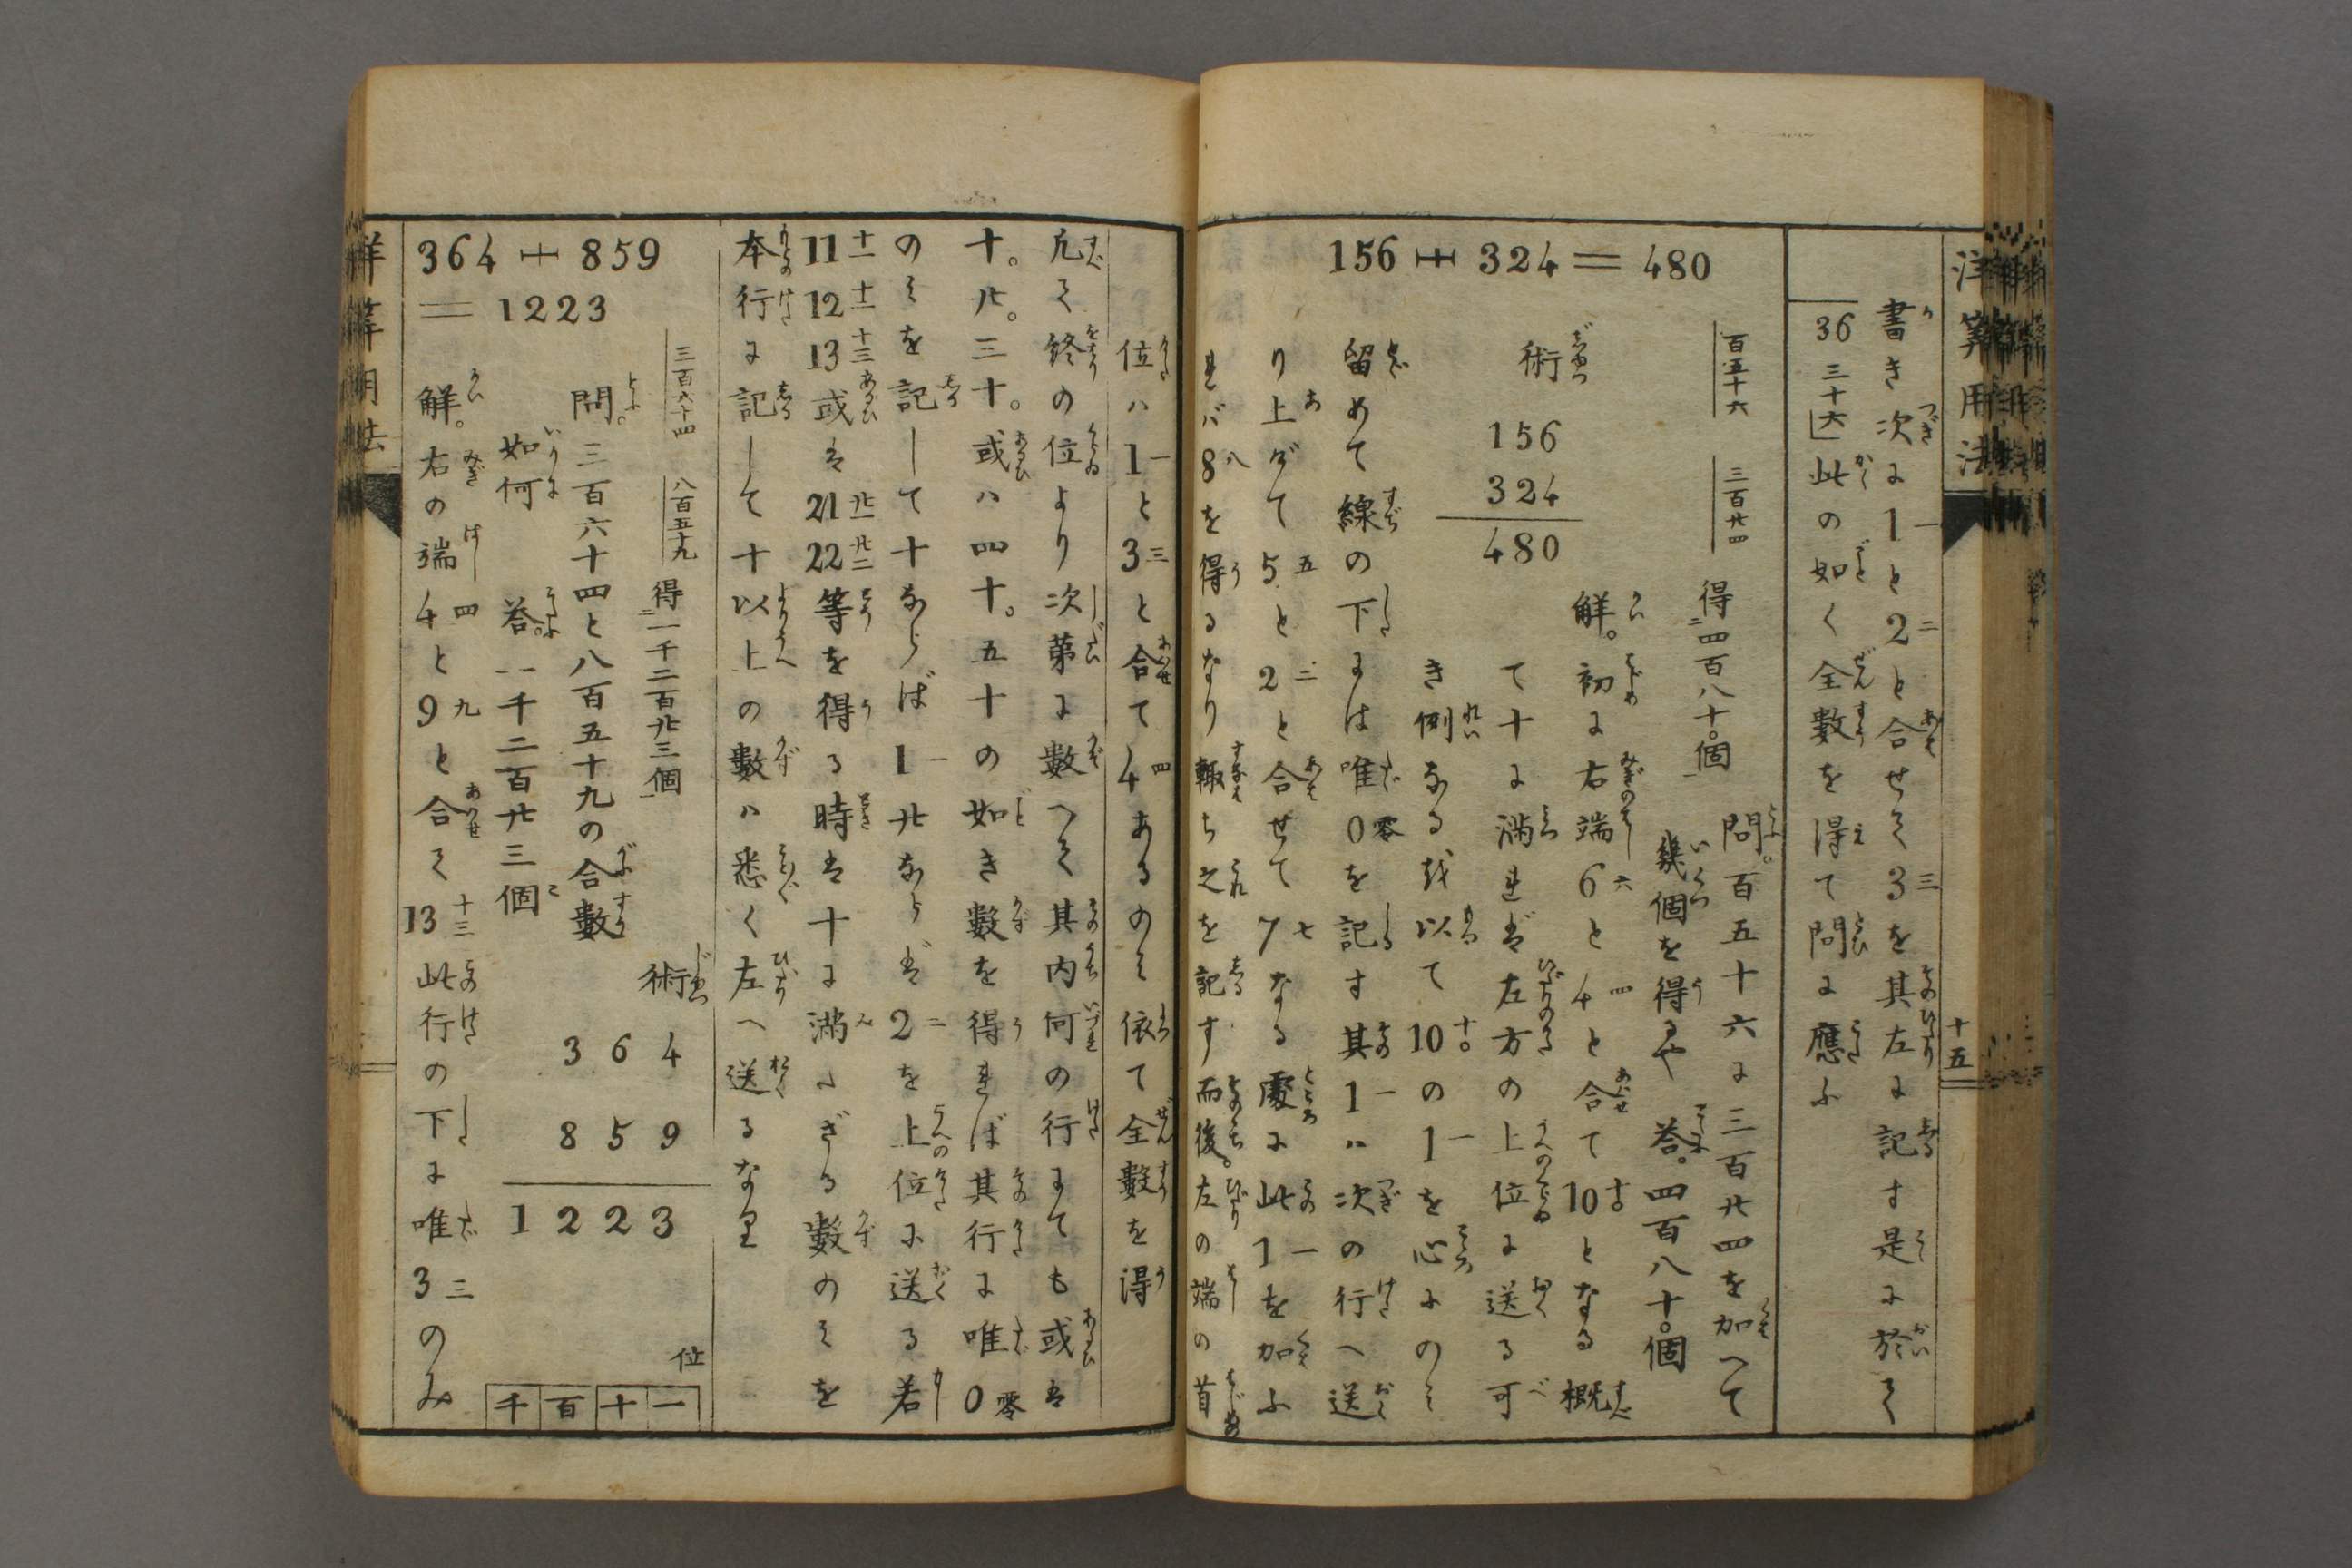 書き次に1と2と合せて3を其左に記す是に於て
36三十六此の如く全數を得て問に應ふ
156 + 324 = 480
百五十六
三百廿四
得二四百八十。個一
問。百五十六に三百廿四を加へて
幾個を得るや 答。四百八十。個
術
156
324
480
解。初に右端6と4と合て10となる概
て十に満れば左方の上位に送る可
き例なる故以て10の1を心にのミ
留めて線の下には唯0を記す其1ハ次の行へ送
り上げて5と2と合せて7なる處に此1を加ふ
れバ8を得るなり輙ち之を記す而後。左の端の首
注筭用法
十五
位ハ1と3と合て4あるのミ依て全數を得
凡て終の位より次第に數へて其内何の行にても或は
十。廿。三十。或ハ四十。五十の如き數を得れば其行に唯0
のミを記して十ならば1廿ならば2を上位に送る若
11 12 13或は21 22等を得る時は十に満たざる數のミを
本行に記して十以上の數ハ悉く左へ送るなり
364 + 859
= 1223
三百六十四
八百五十九
得二一千二百廿三個一
問。三百六十四と八百五十九の合數
如何 答。一千二百廿三個
術
364
859
1223
位
千百十一
解。右の端4と9と合て13此行の下に唯3のみ